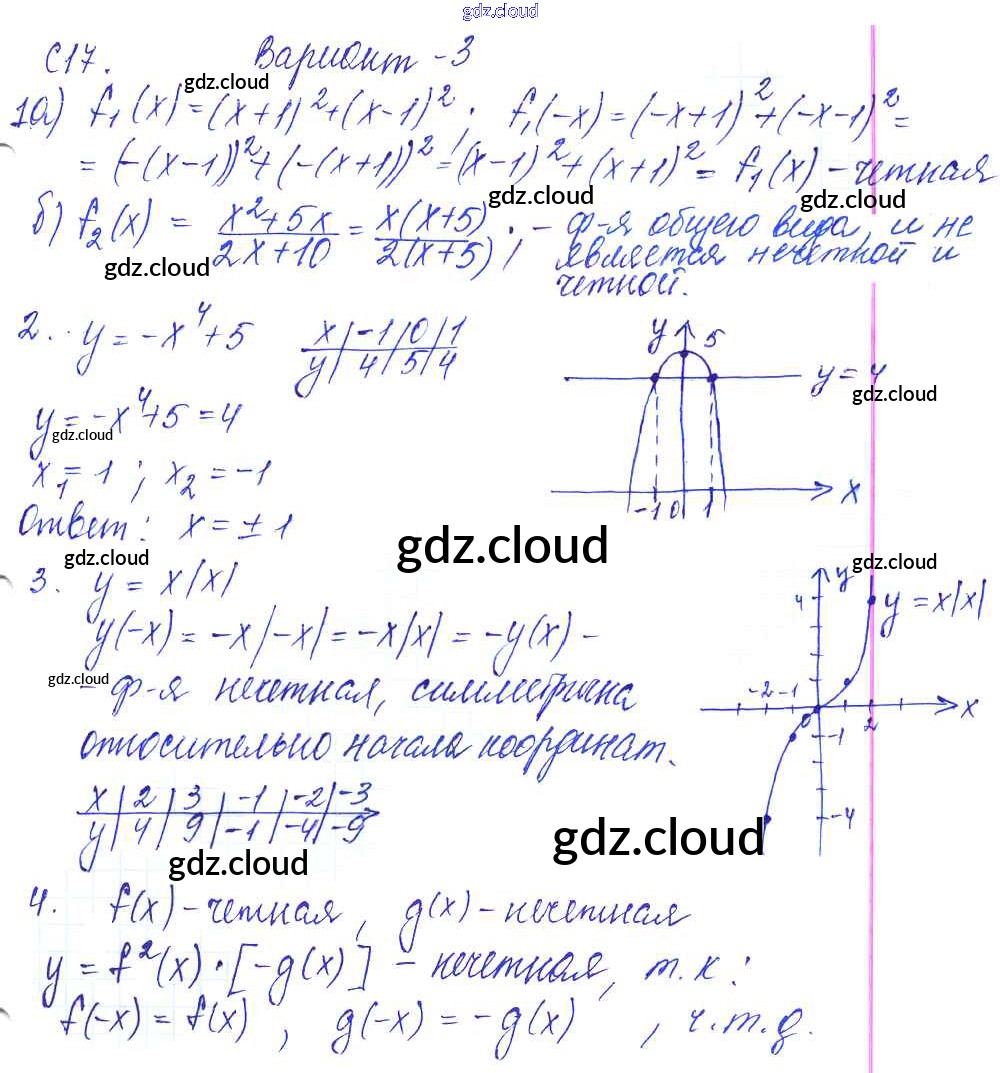 gdz.cloud
С17. Вариант -3
gdz.cloud
1а) f₁(x) = (x+1)² + (x-1)². f₁(-x) = (-x+1)² + (-x-1)² =
= (-(x-1))² + (-(x+1))² = (x-1)² + (x+1)² = f₁(x) - четная
gdz.cloud gdz.cloud
б) f₂(x) = x²+5x / 2x+10 = x(x+5) / 2(x+5) ; - ф-я общего вида, и не
является нечетной и
четной.
gdz.cloud
2. y = -x⁴+5
x | -1 | 0 | 1
y | 4 | 5 | 4
y 5
y = 4
gdz.cloud
y = -x⁴+5 = 4
gdz.cloud
x₁ = 1 ; x₂ = -1
-1 0 1 x
Ответ: x = ± 1
gdz.cloud
gdz.cloud
gdz.cloud
3. y = x|x|
y(-x) = -x|-x| = -x|x| = -y(x) -
gdz.cloud
- ф-я нечетная, симметрична
относительно начала координат.
x | 2 | 3 | -1 | -2 | -3
y | 4 | 9 | -1 | -4 | -9
y
4
y = x|x|
-2 -1 0 2 x
-1
-4
gdz.cloud
gdz.cloud
4. f(x) - четная, g(x) - нечетная
y = f²(x) · [-g(x)] - нечетная, т.к:
f(-x) = f(x) , g(-x) = -g(x) , ч.т.д.